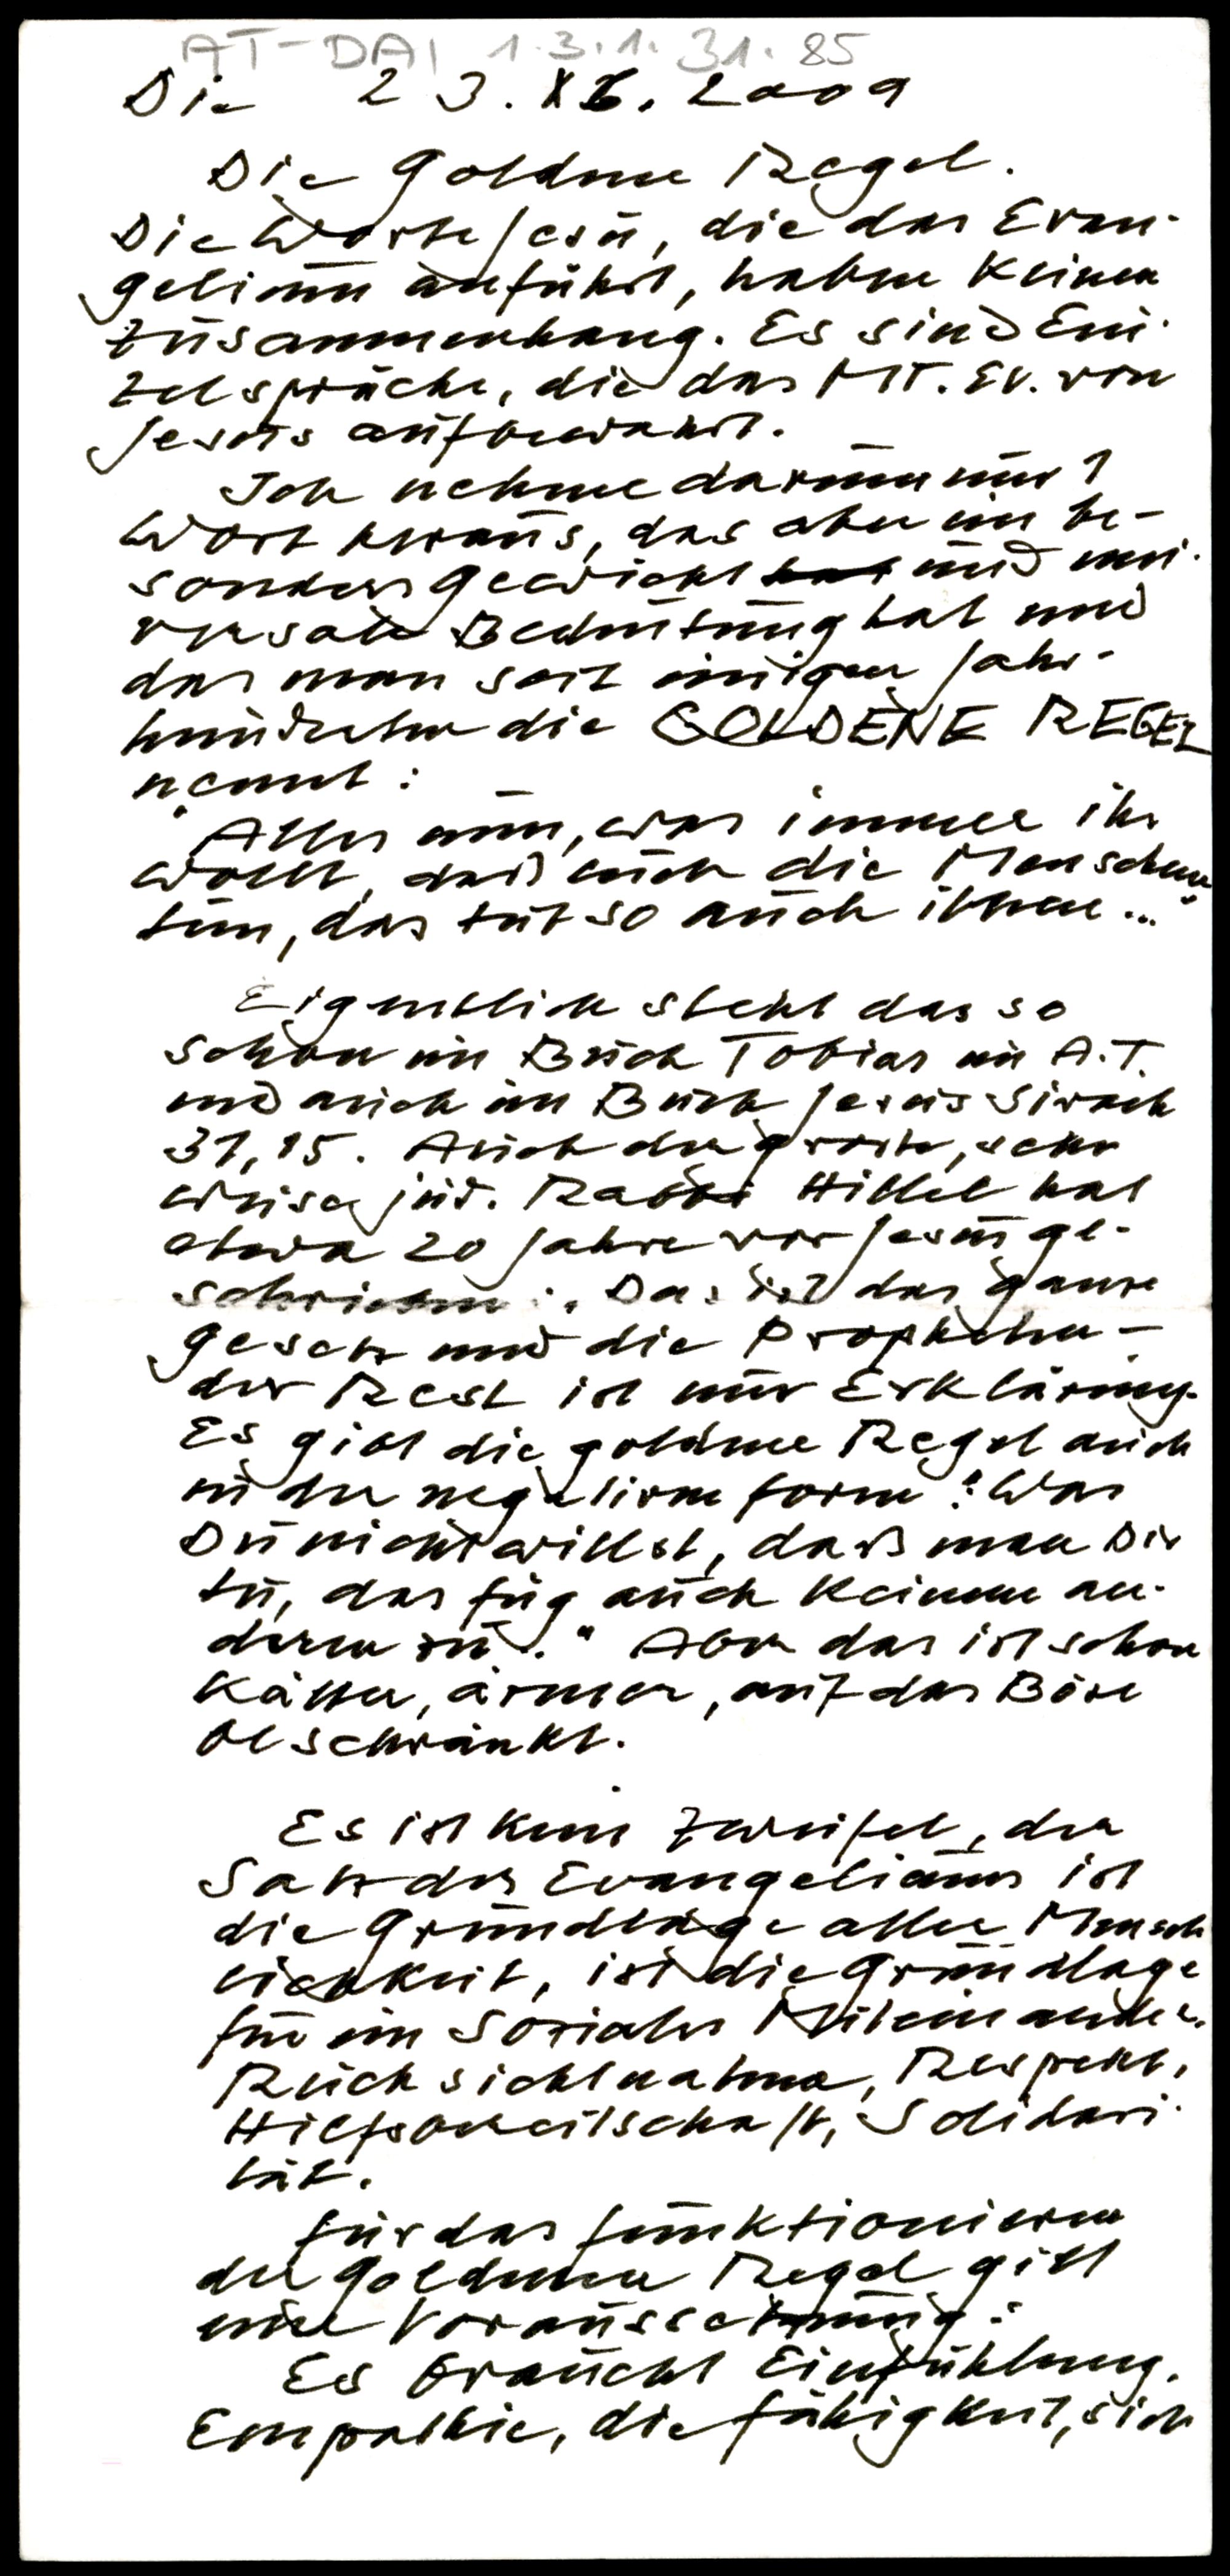 AT-DAI 1.3.1.31.85
Die 23. XI. 2009
Die Goldene Regel.
Die Worte Jesu, die das Evan-
gelium anführt, haben keinen
Zusammenhang. Es sind Ein-
zelsprüche, die das MT. Ev. von
Jesus aufbewahrt.
Ich nehme darum nur 1
Wort heraus, das aber ein be-
sonders Gewicht hat und uni-
versale Bedeutung hat und
das man seit einigen Jahr-
hunderten die GOLDENE REGEL
nennt:
"Alles nun, was immer ihr
wollt, daß euch die Menschen
tun, das tut so auch ihnen..."
Eigentlich steht das so
schon im Buch Tobias im A.T.
und auch im Buch Jesus Sirach
31,15. Auch der große, sehr
weise jüd. Rabbi Hillel hat
etwa 20 Jahre vor Jesus ge-
schrieben: "Das ist das ganze
Gesetz und die Propheten –
der Rest ist nur Erklärung.
Es gibt die goldene Regel auch
in der negativen Form: "Was
Du nicht willst, daß man Dir
tu, das füg auch keinem an-
deren zu." Aber das ist schon
kälter, ärmer, auf das Böse
beschränkt.
Es ist kein Zweifel, der
Satz des Evangeliums ist
die Grundlage aller Mensch
lichkeit, ist die Grundlage
für ein soziales Miteinander.
Rücksichtnahme, Respekt,
Hilfsbereitschaft, Solidari-
tät.
Für das Funktionieren
der Goldenen Regel gilt
eine Voraussetzung:
Es braucht Einfühlung,
Empathie, die Fähigkeit, sich